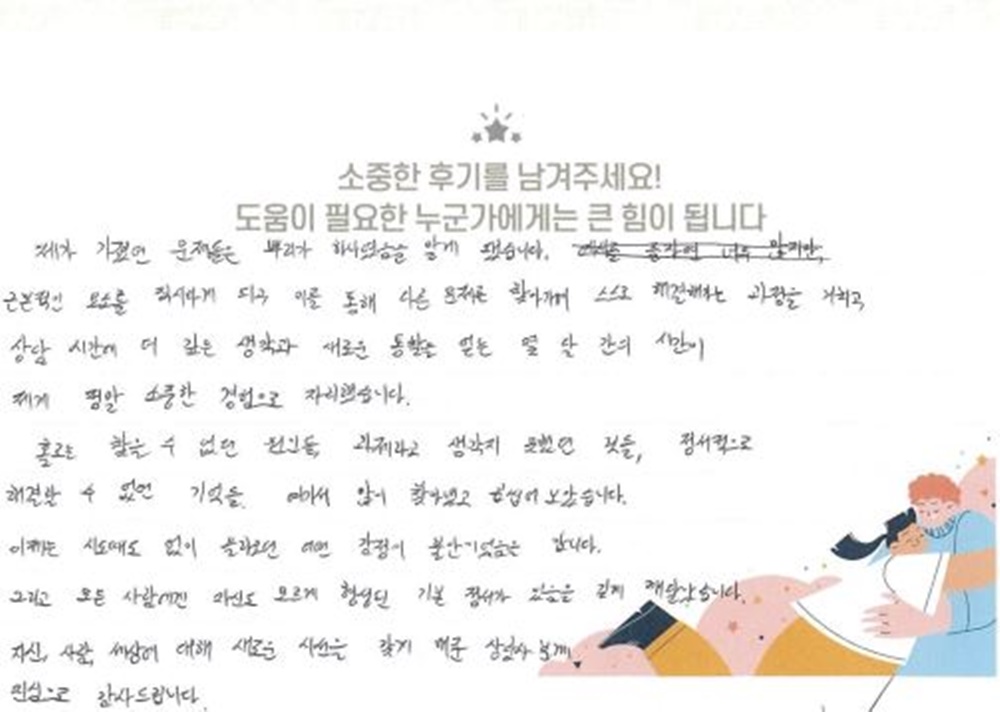 소중한 후기를 남겨주세요!
도움이 필요한 누군가에게는 큰 힘이 됩니다
제가 가졌던 문제들은 뿌리가 하나였음을 알게 됐습니다.
근본적인 요소를 직시하게 되고 이를 통해 다른 문제를 찾아가며 스스로 해결해나는 과정을 거치고,
상담 시간에 더 깊은 생각과 새로운 통찰을 얻는 열 달 간의 시간이
제게 정말 소중한 경험으로 자리했습니다.
홀로는 찾을 수 없던 원인들, 과제라고 생각지 못했던 것들, 정서적으로
해결할 수 없었던 기억들. 여기서 많이 찾아냈고 곱씹어 보았습니다.
이제는 시도때도 없이 올라오던 어떤 감정이 불안이었음을 압니다.
그리고 모든 사람에겐 자신도 모르게 형성된 기본 정서가 있음을 깊게 깨달았습니다.
자신, 사람, 세상에 대해 새로운 시선을 갖게 해준 상담사 분께
진심으로 감사드립니다.